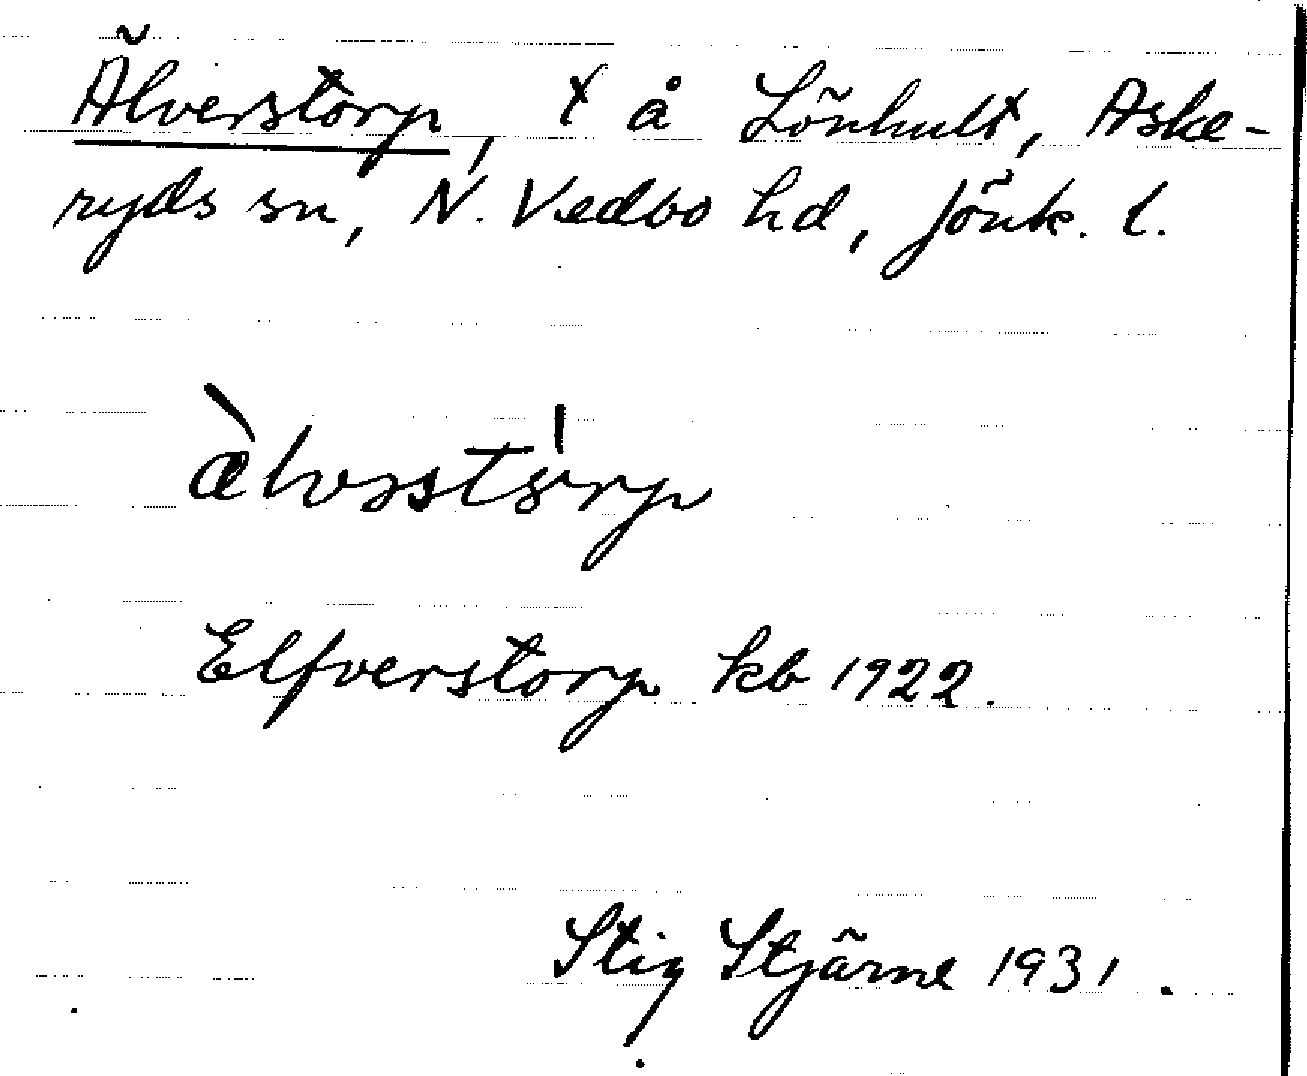 Älverstorp, t å Lönhult, Aske-
ryds sn, N. Vedbo hd, Jönk. l.
Elfverstorp kb 1922.
Stig Stjärne 1931.